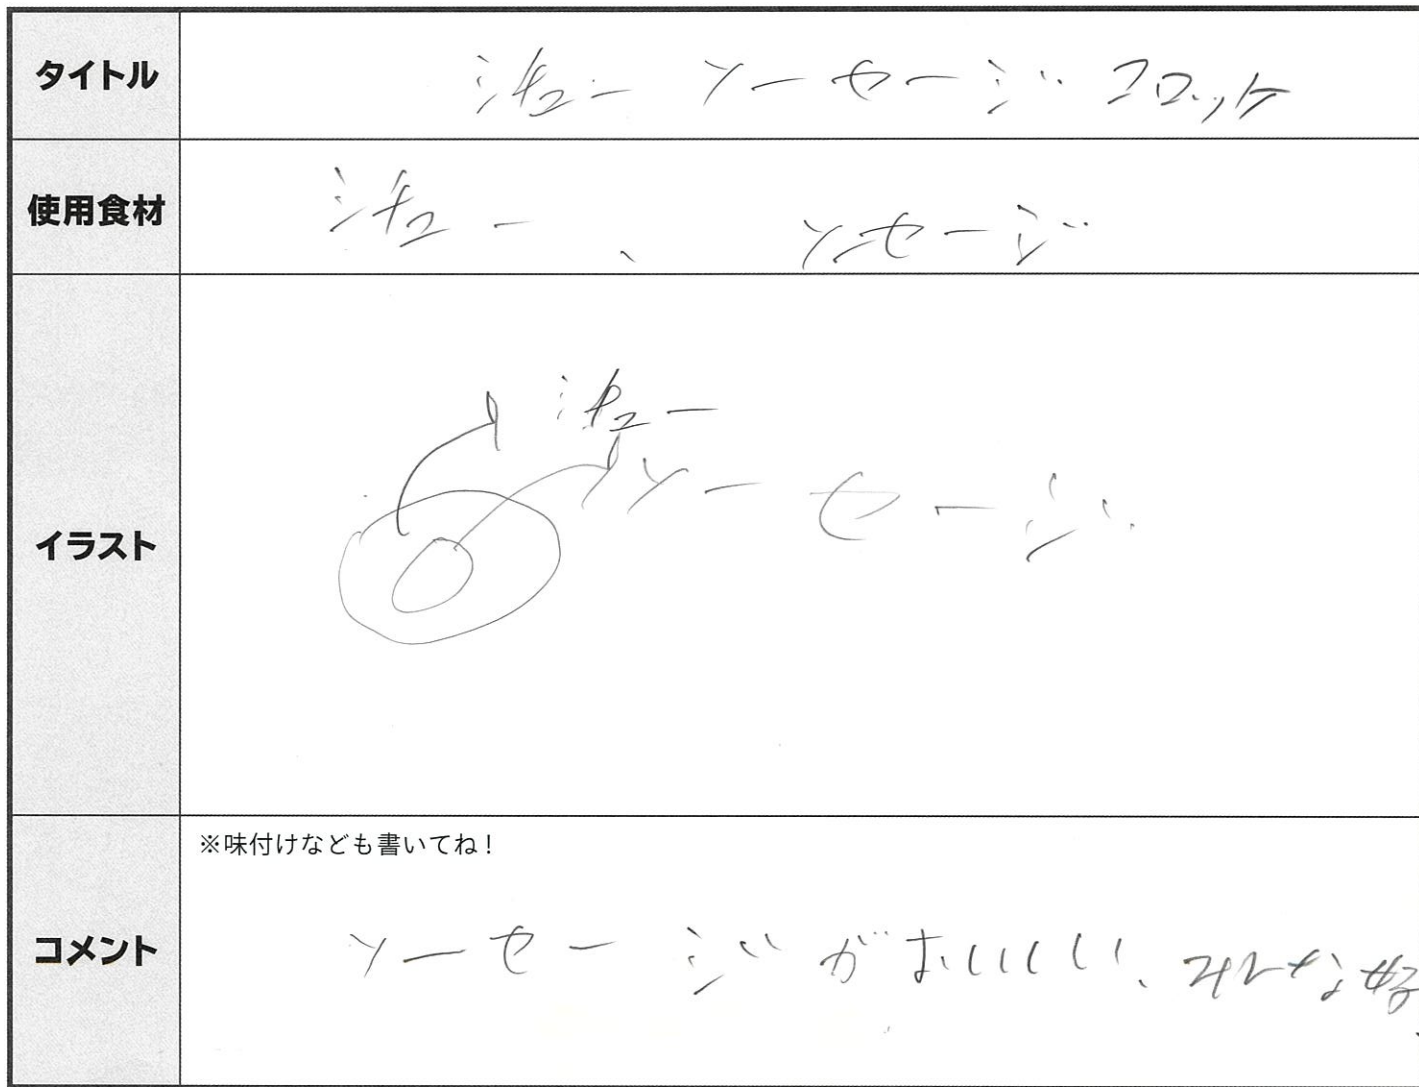 タイトル
シチュー ソーセージ コロッケ
使用食材
シチュー、ソーセージ
イラスト
シチュー
ソーセージ
コメント
※味付けなども書いてね!
ソーセージがおいしい、みんな好